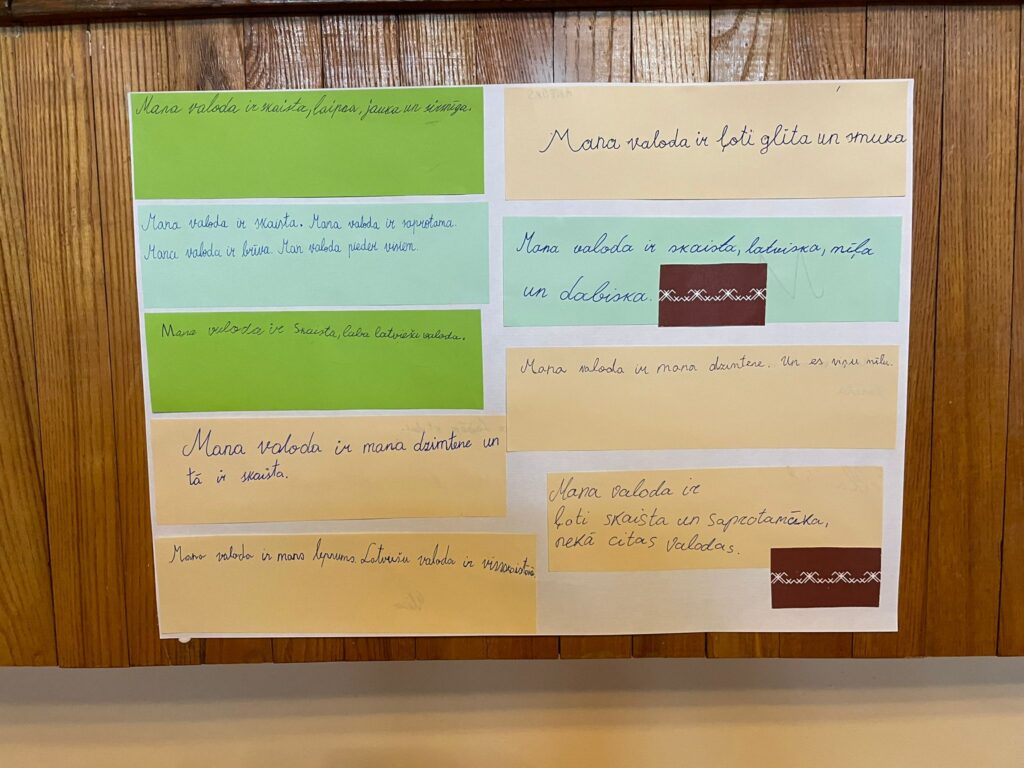 Mana valoda ir skaista, laipna, jauka un sirsnīga.
Mana valoda ir skaista. Mana valoda ir saprotama.
Mana valoda ir brīva. Man valoda pieder visiem.
Mana valoda ir skaista, laba latviešu valoda.
Mana valoda ir mana dzimtene un
tā ir skaista.
Mana valoda ir mans lepnums. Latviešu valoda ir visskaistākā.
Mana valoda ir ļoti glīta un smuka
Mana valoda ir skaista, latviska, mīļa
un dabiska.
Mana valoda ir mana dzimtene. Un es viņu mīlu.
Mana valoda ir
ļoti skaista un saprotamāka,
nekā citas valodas.